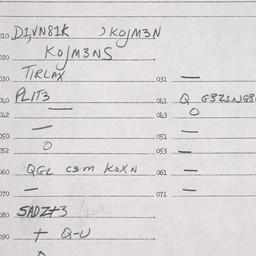 010 D1,VN81K )KOJM3N
020 KOJM3NS
030 TIRLAX 031 —
040 PLIT3 041 Q G3Z1NG3
042 — 043 O
050 — 051 —
052 O 053 —
060 QGL C3M KOXN 061 —
070 — 071 —
080 SADZ+3
090 + Q-U